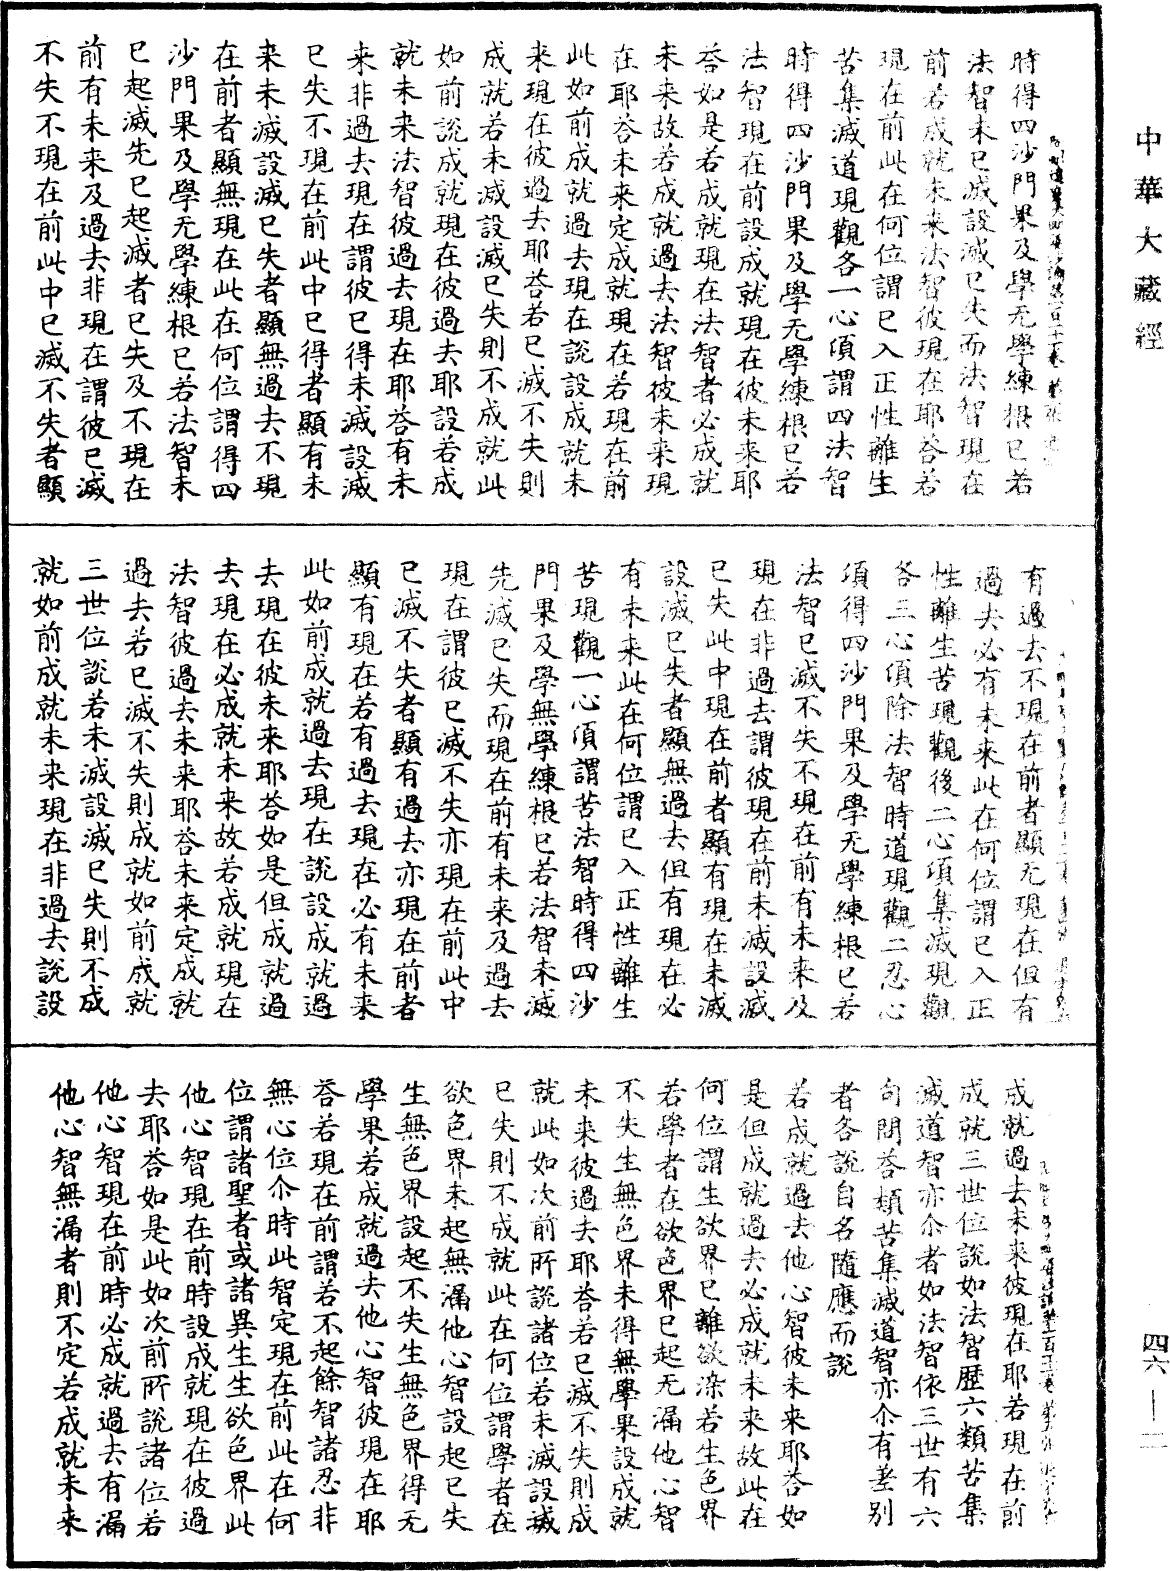 中華大藏經
時得四沙門果及學无學練根已若
法智未已滅設滅已失而法智現在
前若成就未来法智彼現在耶荅若
現在前此在何位謂已入正性離生
苦集滅道現觀各一心頃謂四法智
時得四沙門果及學无學練根已若
法智現在前設成就現在彼未来耶
荅如是若成就現在法智者必成就
未来故若成就過去法智彼未来現
在耶荅未来定成就現在若現在前
此如前成就過去現在說設成就未
来現在彼過去耶荅若已滅不失則
成就若未滅設滅已失則不成就此
如前說成就現在彼過去耶設若成
就未来法智彼過去現在耶荅有未
来非過去現在謂彼已得未滅設滅
已失不現在前此中已得者顯有未
来未滅設滅已失者顯無過去不現
在前者顯無現在此在何位謂得四
沙門果及學无學練根已若法智未
已起滅先已起滅者已失及不現在
前有未来及過去非現在謂彼已滅
不失不現在前此中已滅不失者顯
有過去不現在前者顯无現在但有
過去必有未来此在何位謂已入正
性離生苦現觀後二心頃集滅現觀
各三心頃除法智時道現觀二忍心
頃得四沙門果及學无學練根已若
法智已滅不失不現在前有未来及
現在非過去謂彼現在前未滅設滅
已失此中現在前者顯有現在未滅
設滅已失者顯無過去但有現在必
有未来此在何位謂已入正性離生
苦現觀一心頃謂苦法智時得四沙
門果及學無學練根已若法智未滅
先滅已失而現在前有未来及過去
現在謂彼已滅不失亦現在前此中
已滅不失者顯有過去亦現在前者
顯有現在若有過去現在必有未来
此如前成就過去現在說設成就過
去現在彼未来耶荅如是但成就過
去現在必成就未来故若成就現在
法智彼過去未来耶荅未来定成就
過去若已滅不失則成就如前成就
三世位說若未滅設滅已失則不成
就如前成就未来現在非過去說設
成就過去未来彼現在耶若現在前
成就三世位說如法智歷六類苦集
滅道智亦尒者如法智依三世有六
句問荅類苦集滅道智亦尒有差別
者各說自名隨應而說
若成就過去他心智彼未来耶荅如
是但成就過去必成就未来故此在
何位謂生欲界已離欲染若生色界
若學者在欲色界已起无漏他心智
不失生無色界未得無學果設成就
未来彼過去耶荅若已滅不失則成
就此如次前所說諸位若未滅設滅
已失則不成就此在何位謂學者在
欲色界未起無漏他心智設起已失
生無色界設起不失生無色界得无
學果若成就過去他心智彼現在耶
荅若現在前謂若不起餘智諸忍非
無心位尒時此智定現在前此在何
位謂諸聖者或諸異生生欲色界此
他心智現在前時設成就現在彼過
去耶荅如是此如次前所說諸位若
他心智現在前時必成就過去有漏
他心智無漏者則不定若成就未来
四六—二